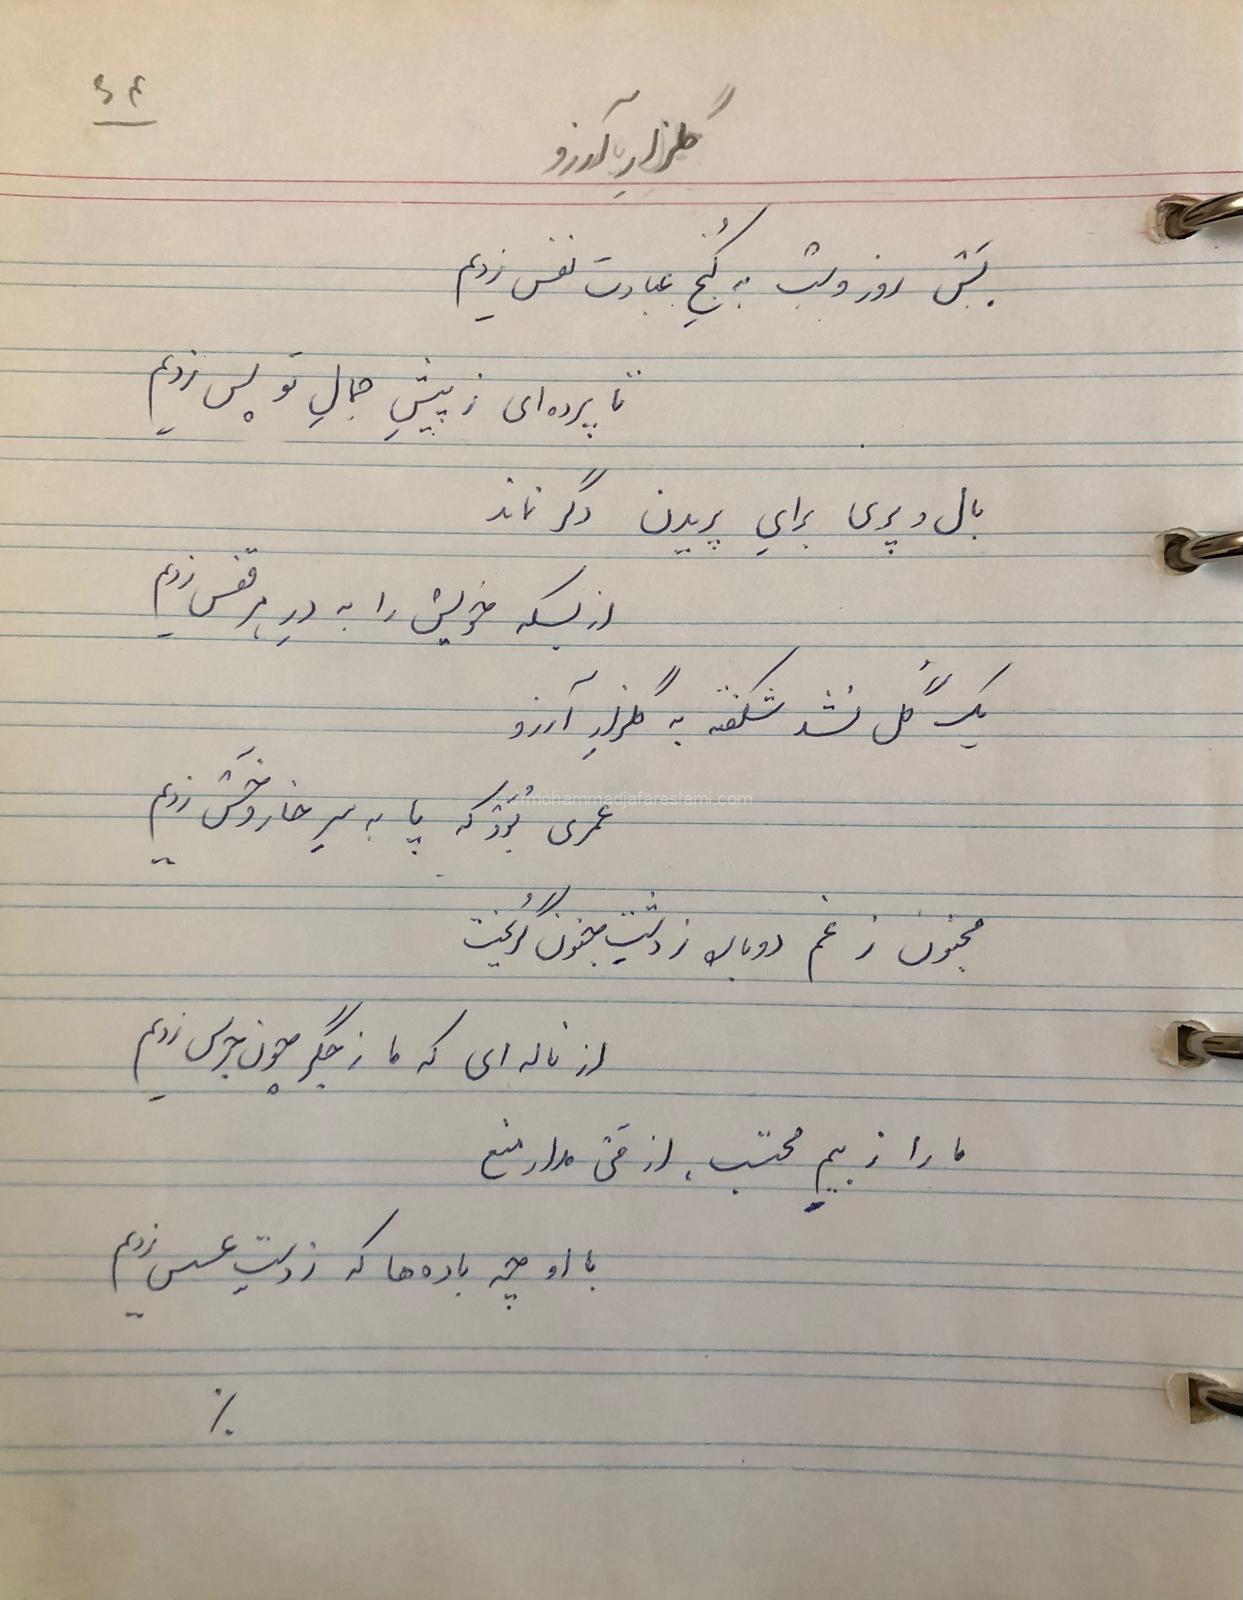 ۶۴
گلزارِ آرزو
بَس روز و شب به کُنجِ عبادت نفس زدیم
تا پرده‌ای ز پیشِ جمالِ تو پس زدیم
بال و پری برایِ پریدن دگر نماند
از بسکه خویش را به درِ هر قفس زدیم
یک گُل نشد شکفته به گلزارِ آرزو
عمری بُوَد که پا به سرِ خار و خَس زدیم
مجنون ز غم دوباره ز دشتِ جنون گُریخت
از ناله‌ای که ما ز جگر چون جرس زدیم
ما را ز بیمِ محتسب، از مَی مدار منع
با او چه باده‌ها که ز دستِ عسس زدیم
mohammadjafareslami.com